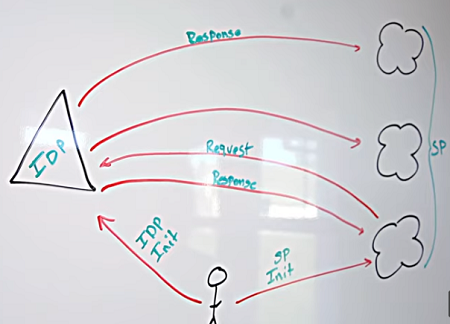 Response
IDP
Request
SP
Response
IDP
Init
SP
Init